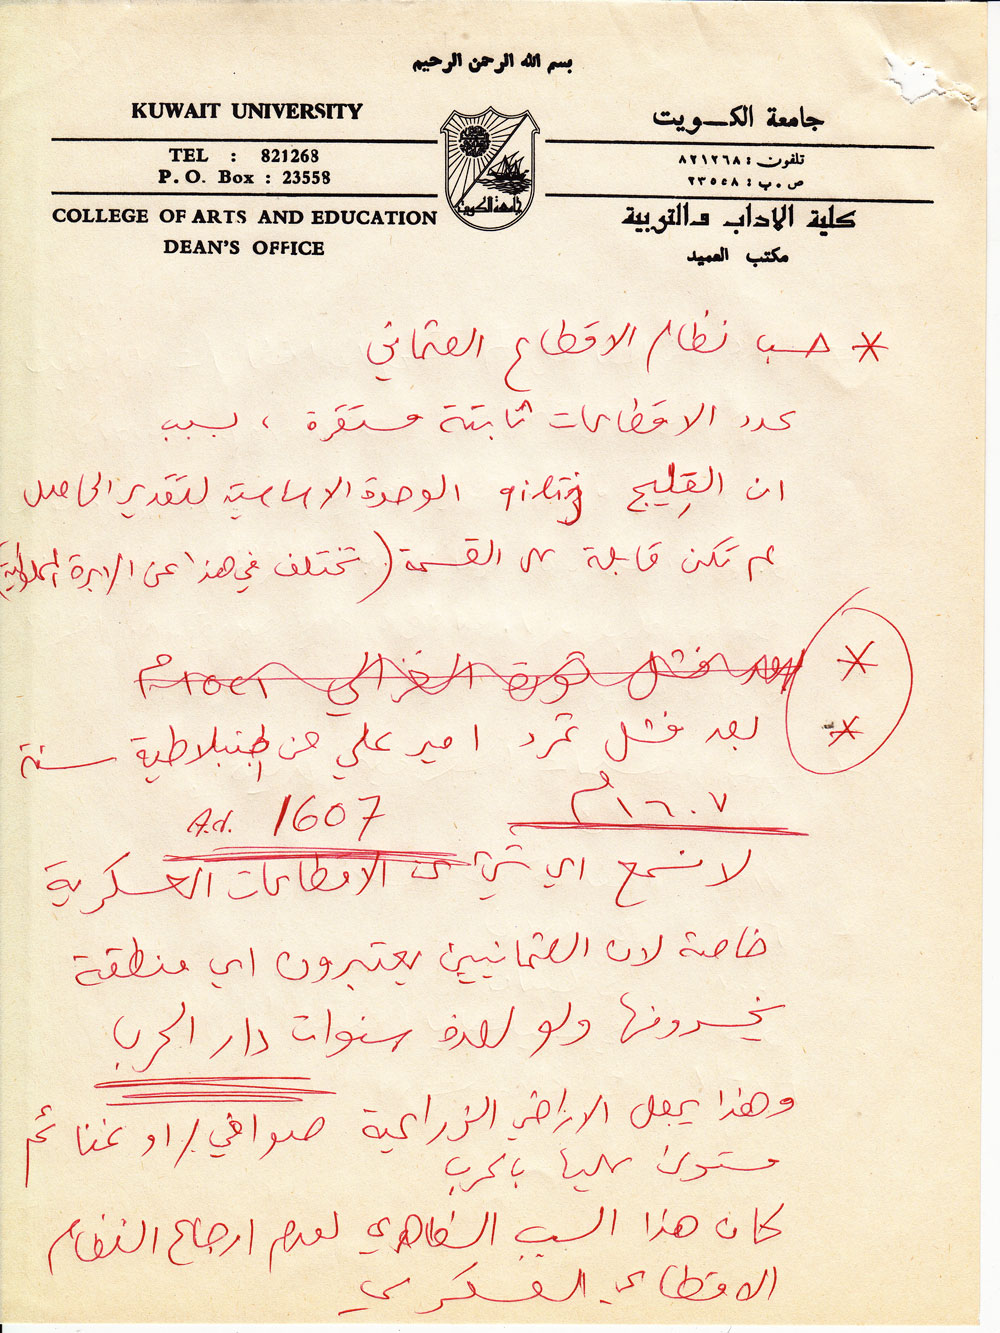 بسم الله الرحمن الرحيم
KUWAIT UNIVERSITY
جامعة الكويت
TEL : 821268
تلفون : ٨٢١٢٦٨
P. O. Box : 23558
ص . ب : ٢٣٥٥٨
جامعة الكويت
COLLEGE OF ARTS AND EDUCATION
كلية الآداب والتربية
DEAN'S OFFICE
مكتب العميد
* حسب نظام الاقطاع العثماني
عدد الاقطاعات ثابتة مستقرة ، بسبب
ان القليج kiliç الوحدة الاساسية لتقدير الحاصل
لم تكن قابلة القسمة ( تختلف في هذا عن
* بعد فشل ثورة الغزالي ١٥٢١م
* بعد فشل تمرد امير علي من جنبلاطية سنة
١٦٠٧م
A.d. 1607
لا نسمع اي شيء عن الاقطاعات العسكرية
خاصة لان العثمانيين يعتبرون اي منطقة
يخسرونها ولو لعدة سنوات دار الحرب
وهذا يجعل الاراضي الزراعية صوافي / او غنائم
مستولى عليها بالحرب
كان هذا السبب الظاهري لعدم ارجاع النظام
الاقطاعي العسكري